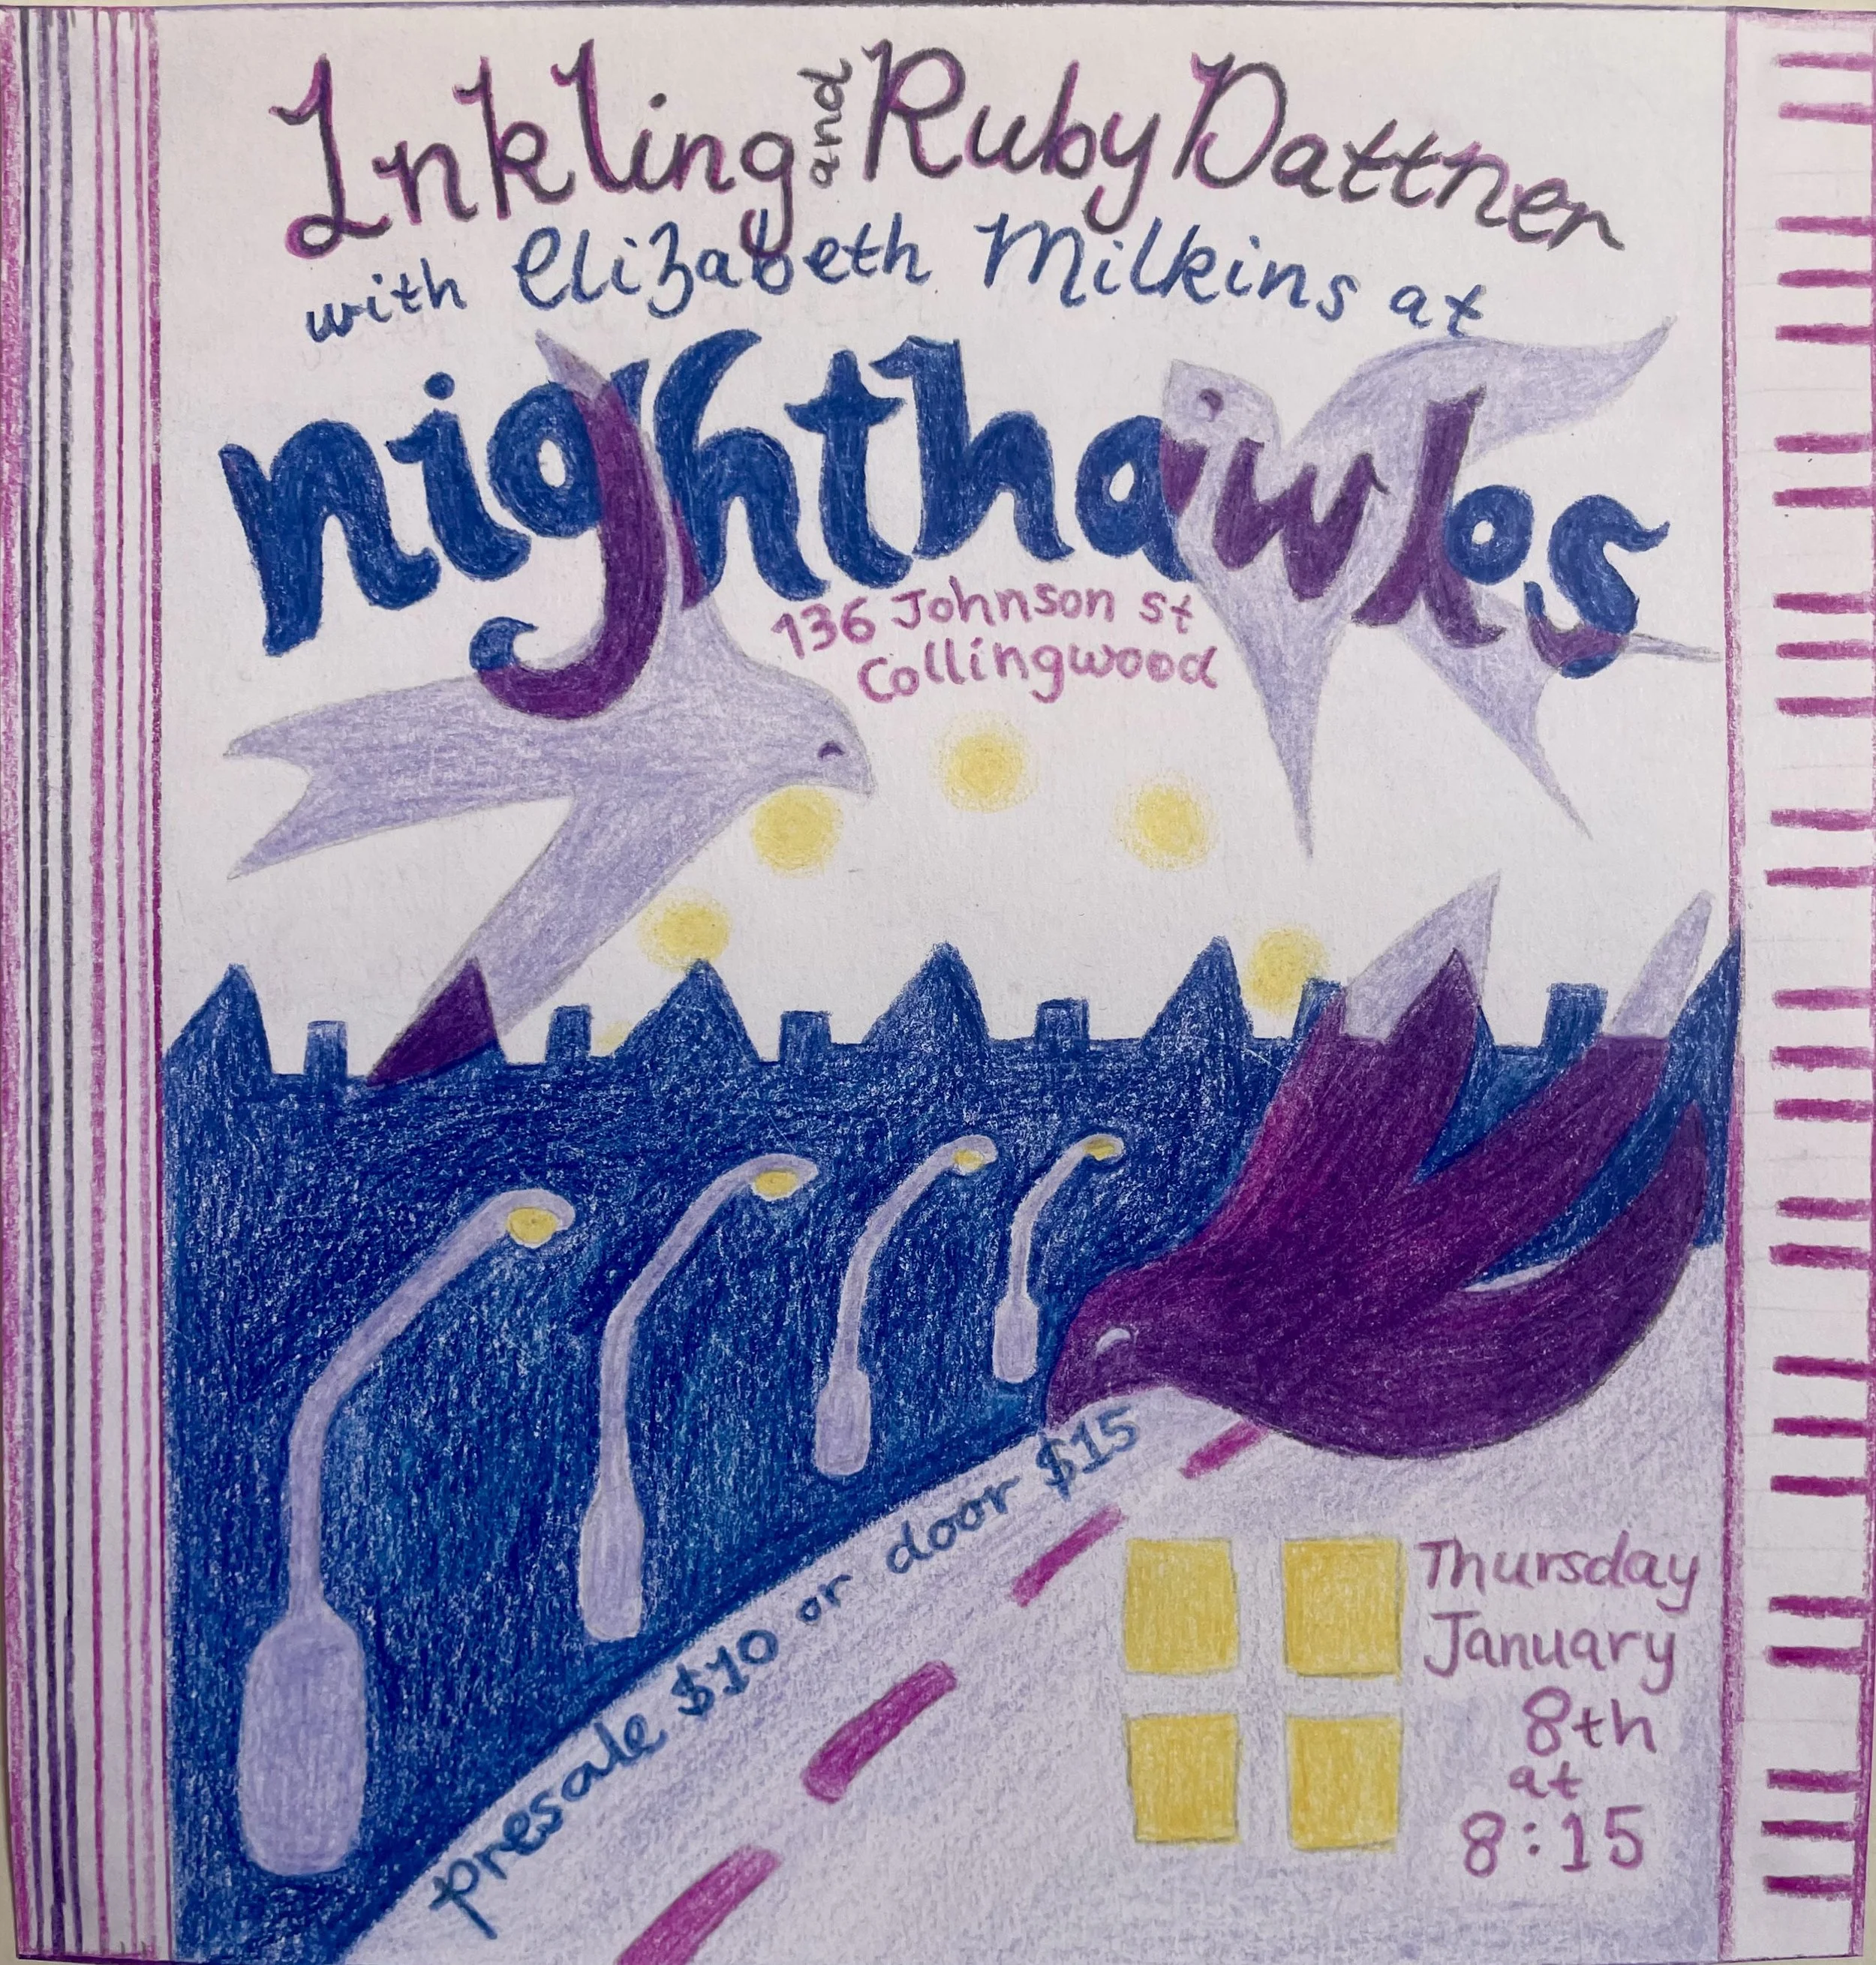 Inkling and Ruby Dattner
with Elizabeth Milkins at
nighthawks
136 Johnson st
Collingwood
presale $10 or door $15
Thursday
January
8th
at
8:15